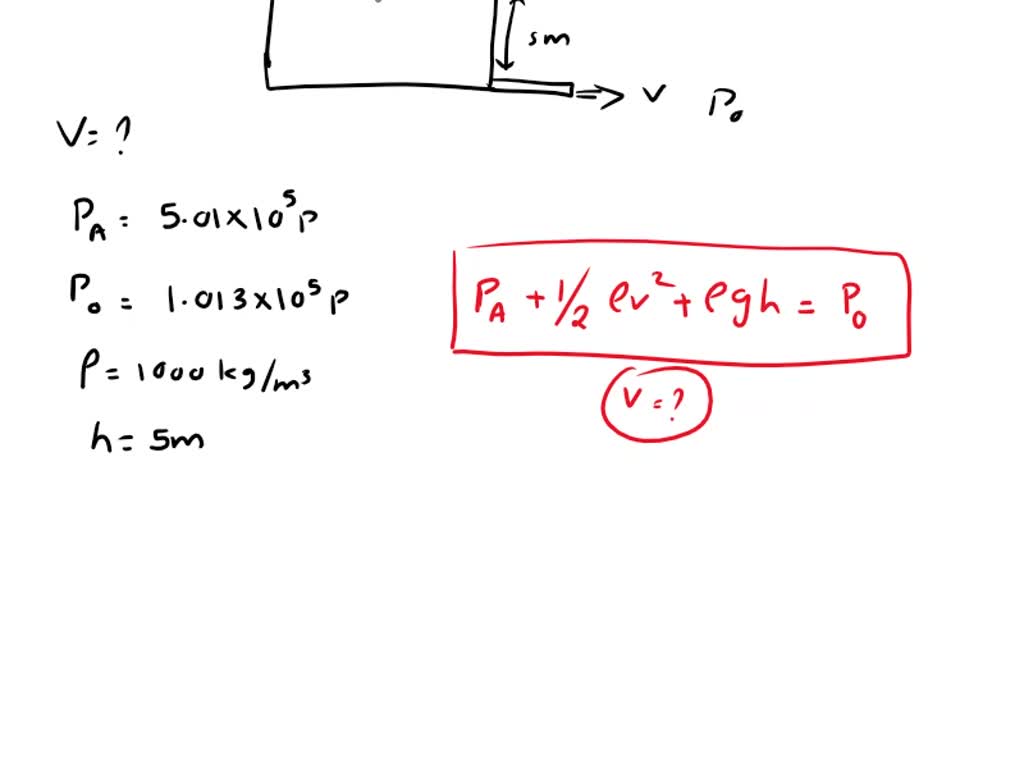 5m
V P₀
V= ?
P_A = 5.01×10⁵ P
P₀ = 1.013×10⁵ P
ρ = 1000 kg/m³
h = 5m
P_A + 1/2 ρv² + ρgh = P₀
V = ?